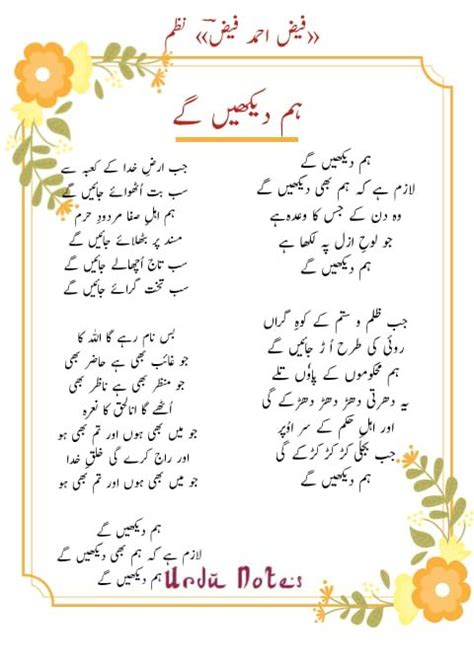 «فیض احمد فیض» نظم
ہم دیکھیں گے
ہم دیکھیں گے
لازم ہے کہ ہم بھی دیکھیں گے
وہ دن کے جس کا وعدہ ہے
جو لوحِ ازل پہ لکھا ہے
ہم دیکھیں گے
جب ظلم و ستم کے کوہِ گراں
روئی کی طرح اُڑ جائیں گے
ہم محکوموں کے پاوٗں تلے
یہ دھرتی دھڑ دھڑ دھڑکے گی
اور اہلِ حکم کے سر اوٗپر
جب بجلی کڑ کڑ کڑکے گی
ہم دیکھیں گے
جب ارضِ خدا کے کعبہ سے
سب بت اُٹھوائے جائیں گے
ہم اہلِ صفا مردودِ حرم
مسند پر بٹھلائے جائیں گے
سب تاج اُچھالے جائیں گے
سب تخت گرائے جائیں گے
بس نام رہے گا اللہ کا
جو غائب بھی ہے حاضر بھی
جو منظر بھی ہے ناظر بھی
اُٹھے گا انالحق کا نعرہ
جو میں بھی ہوں اور تم بھی ہو
اور راج کرے گی خلقِ خدا
جو میں بھی ہوں اور تم بھی ہو
ہم دیکھیں گے
لازم ہے کہ ہم بھی دیکھیں گے
ہم دیکھیں گے
Urdu Notes